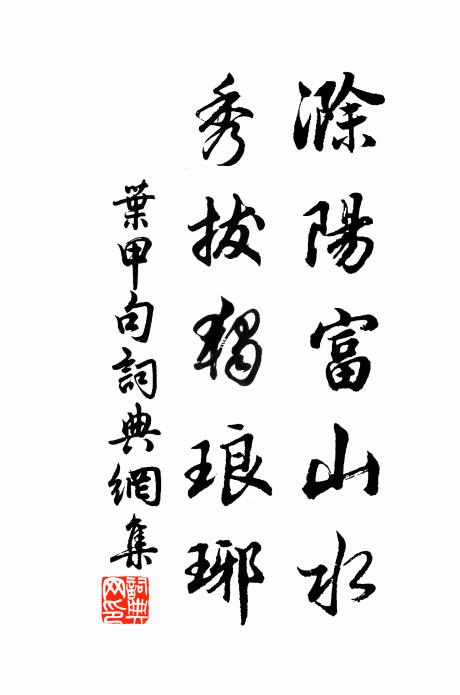 滁陽富山水
秀拔獨琅琊
葉甲句詞典網集
詞典網印